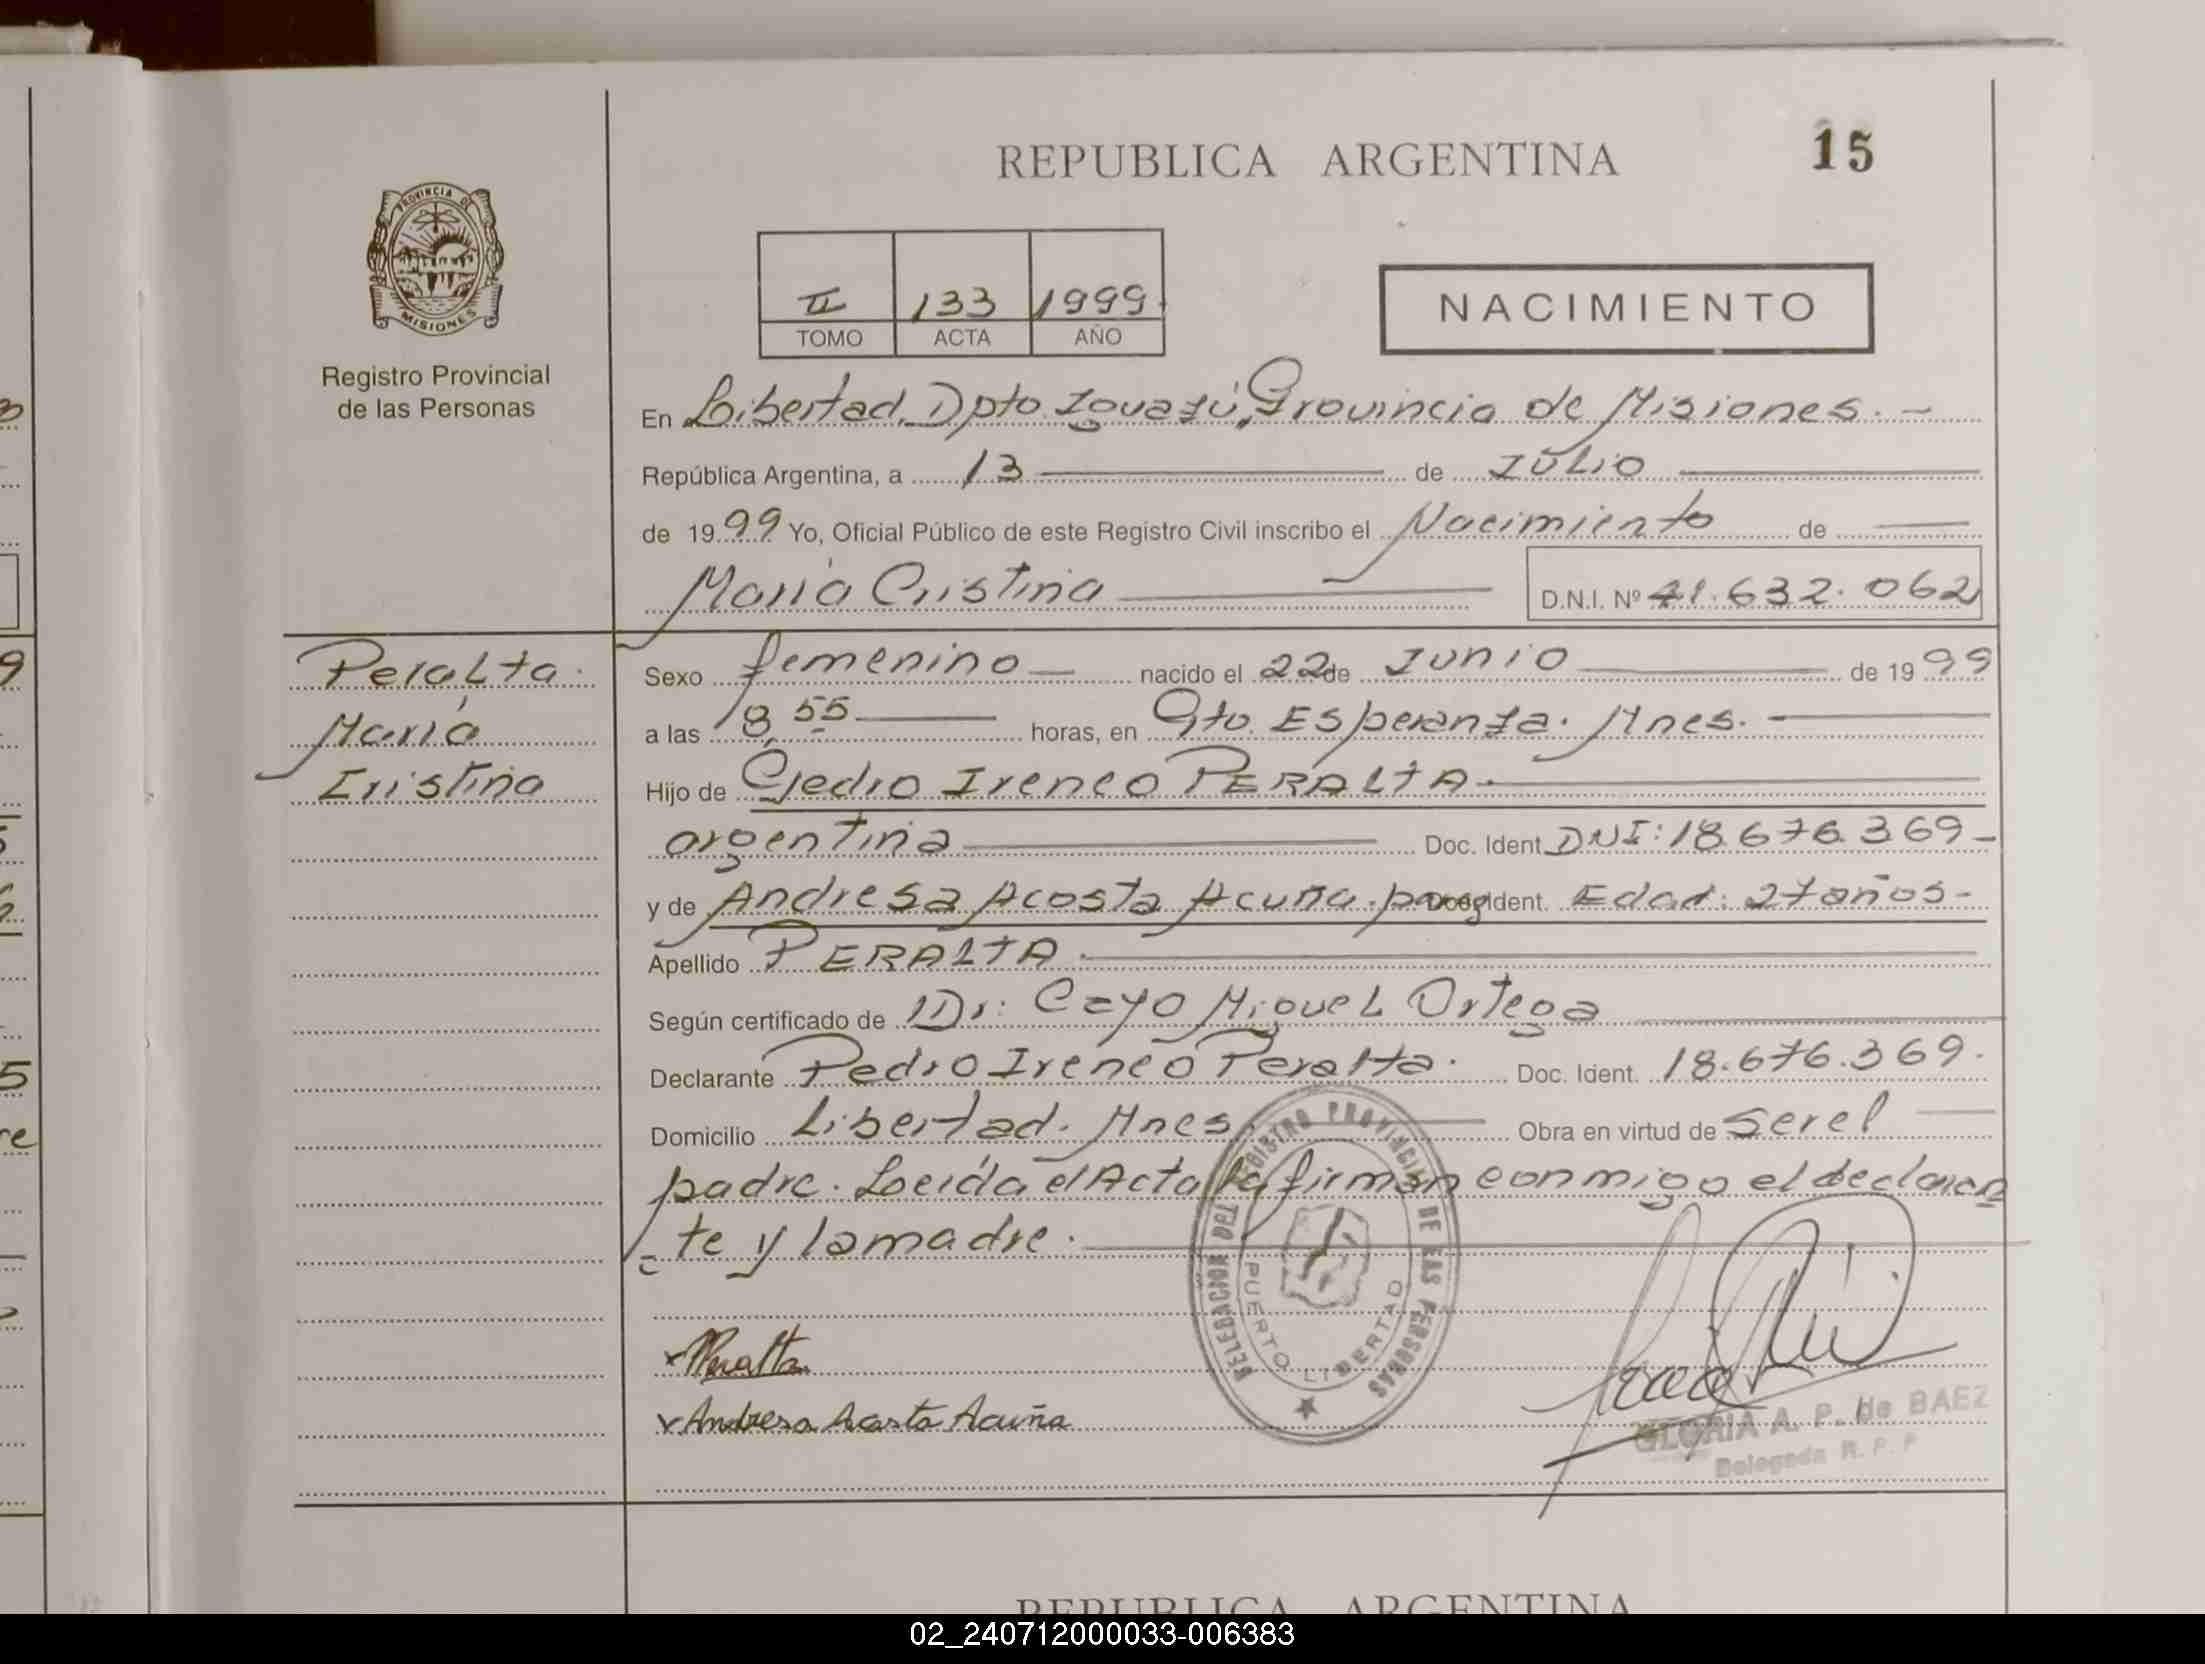 REPUBLICA ARGENTINA
15
PROVINCIA DE
MISIONES
Registro Provincial
de las Personas
II 133 1999
TOMO ACTA AÑO
NACIMIENTO
En Libertad, Dpto Iguazú, Provincia de Misiones.-
República Argentina, a 13 de Julio
de 1999 Yo, Oficial Público de este Registro Civil inscribo el Nacimiento de
María Cristina D.N.I. Nº 41.632.062
Peralta.
María
Cristina
Sexo femenino nacido el 22 de Junio de 1999
a las 8,55 horas, en Pto. Esperanza. Mnes.
Hijo de Pedro Ireneo PERALTA.
argentina Doc. Ident DNI: 18.676.369-
y de Andresa Acosta Acuña. Doc. Ident. Edad: 27 años-
Apellido PERALTA.
Según certificado de Dr: Cayo Miguel Ortega
Declarante Pedro Ireneo Peralta. Doc. Ident. 18.676.369.
Domicilio Libertad. Mnes. Obra en virtud de ser el
padre. Leída el Acta la firman conmigo el declaran
te y la madre.
DELEGACION DEL REGISTRO PROVINCIAL DE LAS PERSONAS
PUERTO LIBERTAD
x Peralta
x Andresa Acosta Acuña
GLORIA A. P. de BAEZ
Delegada R. P. P
REPUBLICA ARGENTINA
02_240712000033-006383